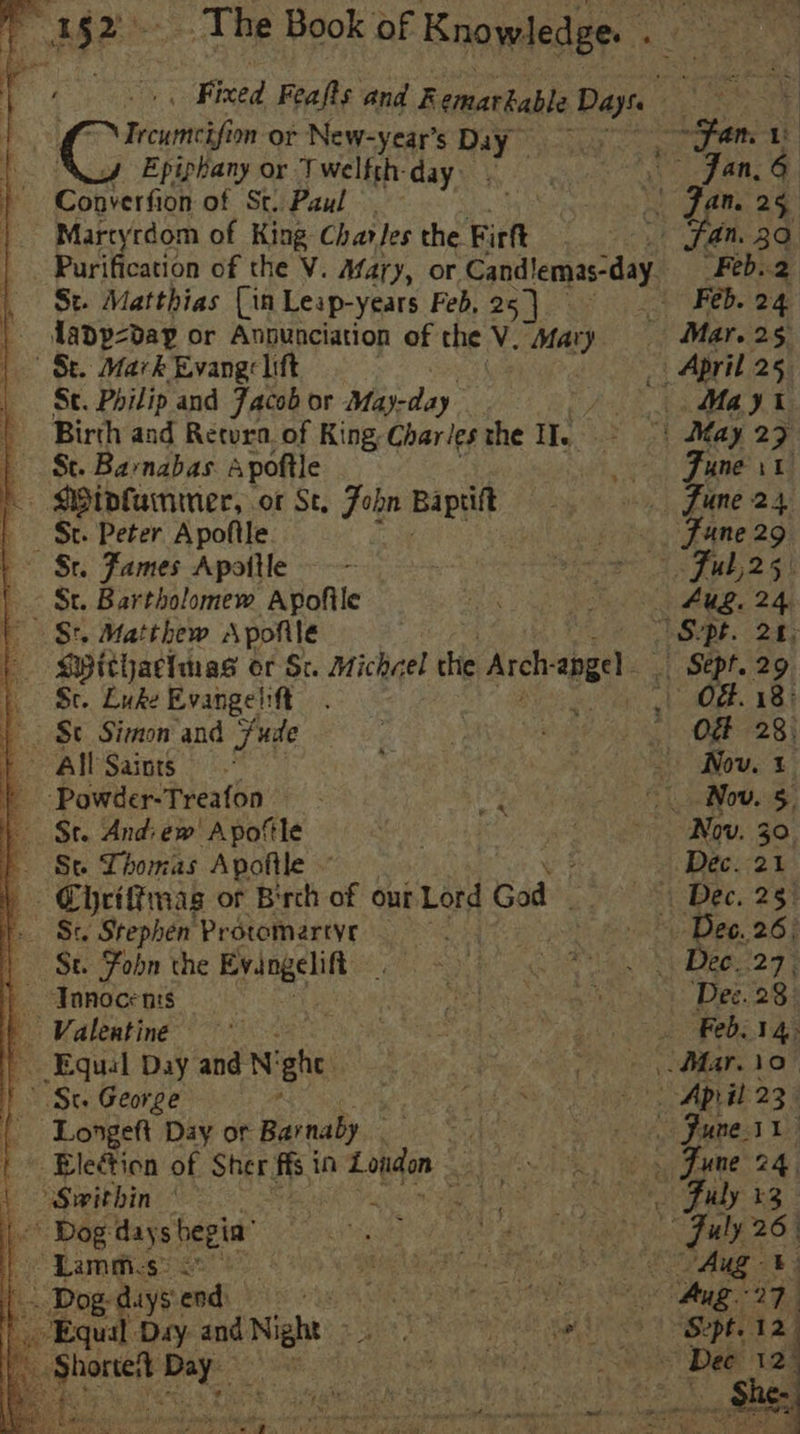 152 The Book of Knowledge.
Fixed Feaſts and Remarkable Days.
CIrcumciſion or New-year's Day Jan. 1
Epiphany or Twelfth-day Jan. 6
Converſion of St. Paul Jan. 25
Martyrdom of King Charles the Firſt Jan. 30
Purification of the V. Mary, or Candlemas-day Feb. 2
St. Matthias [in Leap-years Feb. 25] Feb. 24
Lady-day or Annunciation of the V. Mary Mar. 25
St. Mark Evangeliſt April 25
St. Philip and Jacob or May-day May 1
Birth and Return of King Charles the II. May 29
St. Barnabas Apoſtle June 11
Midſummer, or St. John Baptiſt June 24
St. Peter Apoſtle June 29
St. James Apoſtle Jul, 25
St. Bartholomew Apoſtle Aug. 24
St. Matthew Apoſtle Sept. 21
Michaelmas or St. Michael the Arch-angel Sept. 29
St. Luke Evangeliſt Oct. 18
St Simon and Jude Oct 28
All Saints Nov. 1
Powder-Treaſon Nov. 5
St. Andrew Apoſtle Nov. 30
St. Thomas Apoſtle Dec. 21
Chriſtmas or Birth of our Lord God Dec. 25
St. Stephen Protomartyr Dec. 26
St. John the Evangeliſt Dec. 27
Innocents Dec. 28
Valentine Feb. 14
Equal Day and Night Mar. 10
St. George April 23
Longeſt Day or Barnaby June 11
Election of Sheriffs in London June 24
Swithin July 15
Dog days begin July 26
Lammas Aug 1
Dog-days end Aug. 27
Equal Day and Night Sept. 12
Shorteſt Day Dec 12
She-